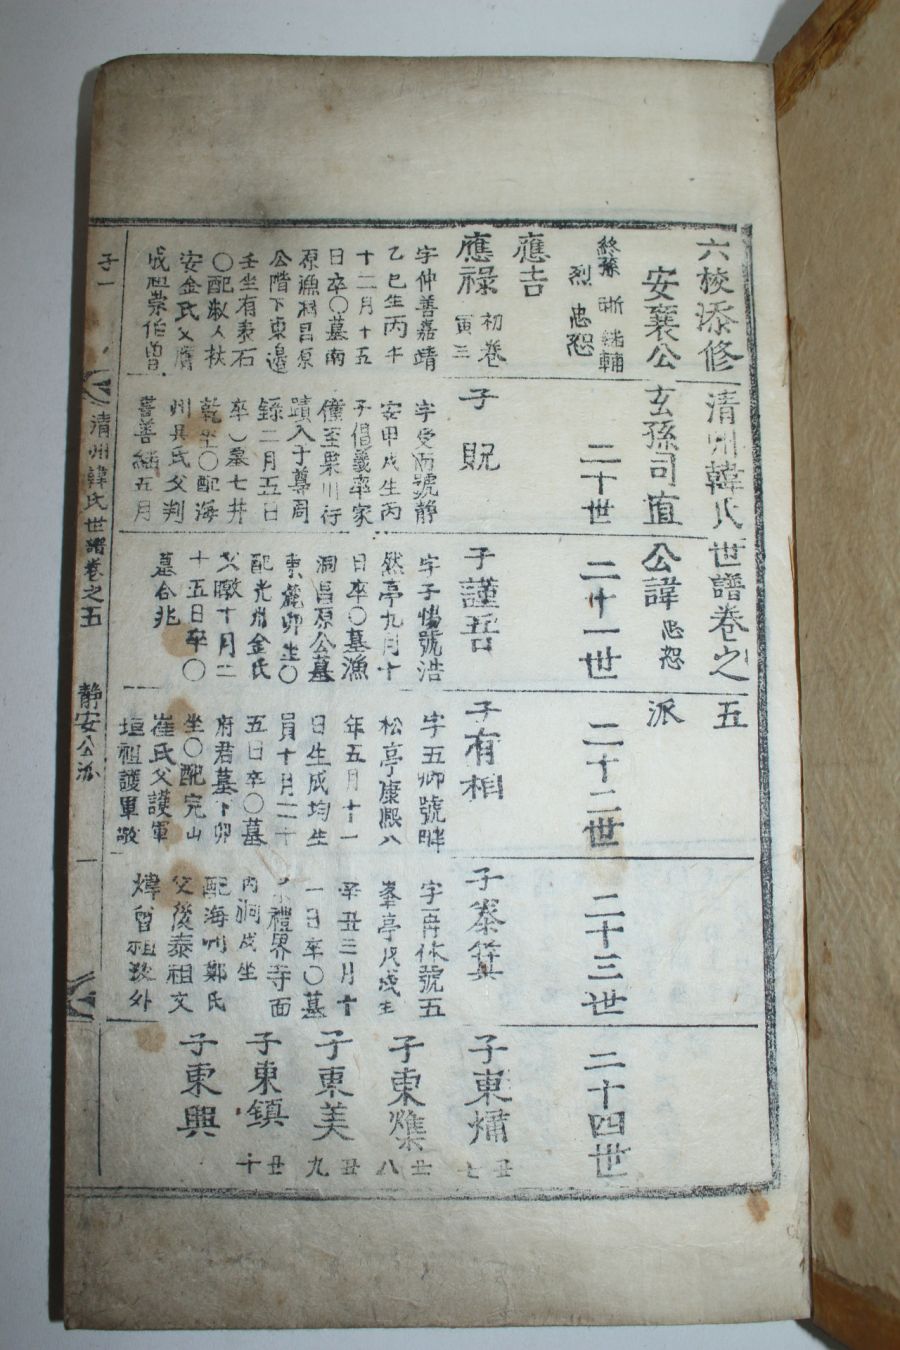 六校添修清州韓氏世譜卷之五
安襄公玄孫司直公諱忠恕派
終孫 晣 緖輔
烈 忠恕
二十世
二十一世
二十二世
二十三世
二十四世
應吉
應祿 初卷 寅三
字仲善嘉靖
乙巳生丙午
十二月十五
日卒〇墓南
原漁洞昌原
公階下東邊
壬坐有表石
〇配淑人扶
安金氏父
祖崇伯曾
子貺
字受而號静
安甲戌生丙
子倡義率家
僮至果川行
蹟入于尊周
錄二月五日
卒〇墓七井
乾坐〇配海
州吳氏父判
善緬五月
子謹吾
字子惕號浩
然亭九月十
日卒〇墓漁
洞昌原公墓
東麓卯坐〇
配光州金氏
父暾十月二
十五日卒〇
墓合兆
子有相
字五卿號畔
松亭康熙八
年五月十一
日生成均生
員十月二十
五日卒〇墓
府君墓下卯
坐〇配完山
崔氏父護軍
垣祖護軍敬
子泰箕
字再休號五
峯亭戊戌生
辛丑三月十
一日卒〇墓
禮界寺面
內洞戌坐
配海州鄭氏
父後泰祖文
煒曾祖 外
子東爀 丑七
子東爃 丑八
子東美 丑九
子東鎭 丑十
子東興
子一
清州韓氏世譜卷之五
静安公派
一